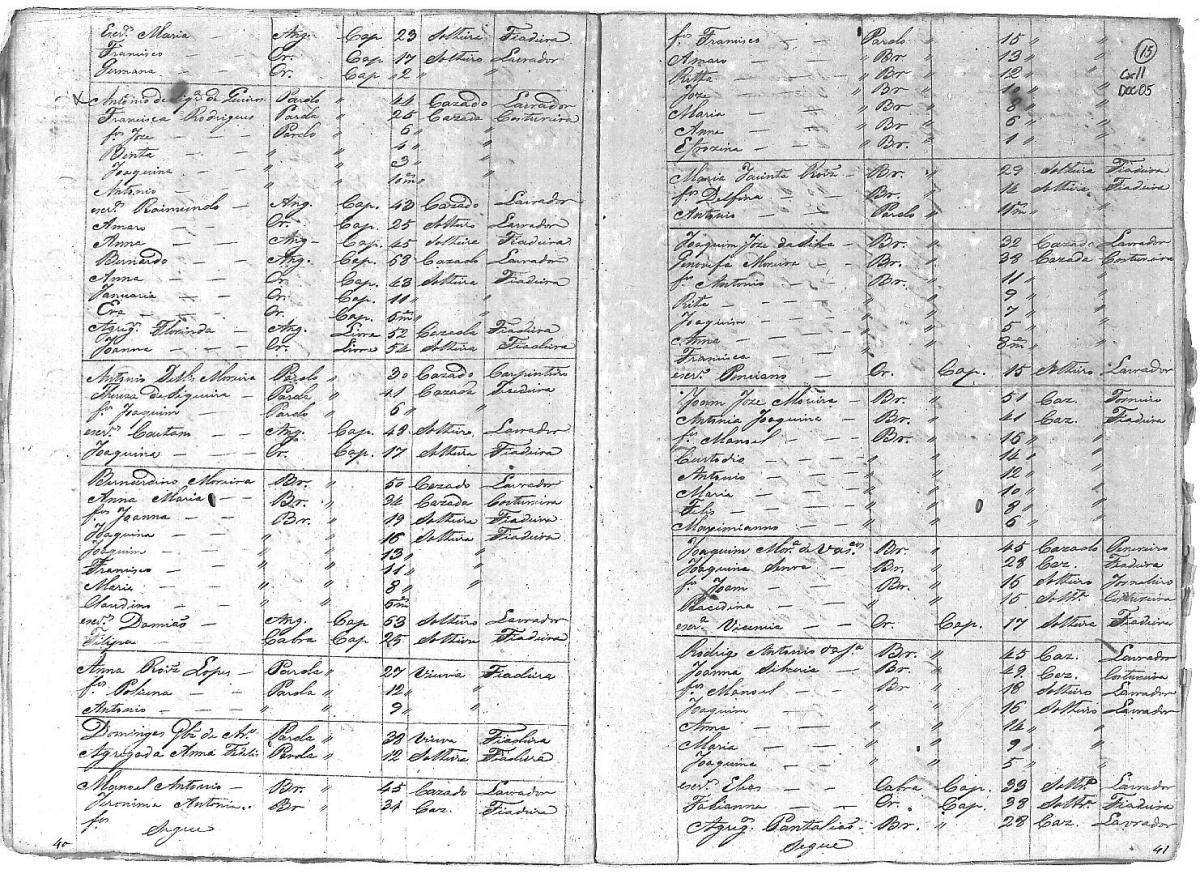 Escrª Maria — Ang. Cap 23 Solteira Fiadeira
Francisco — Cr. Cap 17 Solteiro Lavrador
Germana — Cr. Cap 12 " "
Antonio de Pardo " 44 Cazado Lavrador
Francisca Rodrigues Parda " 25 Cazada Costureira
fos Joze — Pardo " 6 " "
Benta — — " " 4 " "
Joaquina — " " 3 " "
Antonio — " " 10m " "
escrº Raimundo — Ang. Cap. 42 Cazado Lavrador
Amaro — — Cr. Cap. 25 Solteiro Lavrador
Anna — — Ang. Cap. 45 Solteira Fiadeira
Bernardo — Ang. Cap. 58 Cazado Lavrador
Anna — — Cr. Cap. 43 Solteira Fiadeira
Januaria — — Cr. Cap. 11 " "
Eva — — Cr. Cap. 5m " "
Agregª Florinda — Ang. Livre 52 Cazada Fiadeira
Joanna — — Cr. Livre 54 Solteira Fiadeira
Antonio Moreira Pardo " 30 Cazado Carpinteiro
Thereza de Siqueira — Parda " 41 Cazada Fiadeira
fº Joaquim — Pardo " 6 " "
escrº Caetam — Ang. Cap. 42 Solteiro Lavrador
Joaquina — Cr. Cap. 17 Solteira Fiadeira
Bernardino Moreira Br. " 50 Cazado Lavrador
Anna Maria — Br. " 34 Cazada Costureira
fos Joanna — Br. " 19 Solteira Fiadeira
Joaquina — " " 16 Solteira Fiadeira
Joaquim — " " 13 " "
Francisco — " " 11 "
Maria — — " " 8 "
Claudino — " " 5m
escrº Damião — Ang. Cap 53 Solteiro Lavrador
Filipa — — Cabra Cap 25 Solteira Fiadeira
Anna Roiz Lopes — Parda " 27 Viuva Fiadeira
fos Polucena — Parda " 12 " "
Antonio — — " 9 " "
Domingas de Parda " 39 Viuva Fiadeira
Agregada Anna Parda " 12 Solteira Fiadeira
Manoel Antonio — Br. " 45 Cazado Lavrador
Jeronima Antonia Br " 34 Caz. Fiadeira
fos
Segue
40
fos Francisco — Pardo " 15 " "
Amaro — — " Br. " 13 " "
Ritta — — " Br " 12 " "
Joze — — " Br " 10 " "
Maria — — " Br " 8 " "
Anna — — " Br. " 6 " "
Efrozina — " Br. " 1 " "
15
Cx11
Doc05
Maria Jacinta Roiz — Br. " 29 Solteira Fiadeira
fos Delfina — — Br. " 14 Solteira Fiadeira
Antonio — — Pardo " 15m " "
Joaquim Joze da Silva — Br. " 32 Cazado Lavrador
Moreira — Br. " 38 Cazada Costureira
fos Antonio — — Br. " 11 " "
Rita — — — " 9 " "
Joaquim — — " 7 " "
Anna — — " 5 " "
Francisca — — " 8m " "
escrº Ponciano — Cr. Cap. 15 Solteiro Lavrador
Joam Joze Moreira — Br. " 51 Caz. Torneiro
Antonia Joaquina — Br. " 41 Caz. Fiadeira
fos Manoel — — Br. " 15 " "
Custodio — — " 14 " "
Antonio — — " 12 " "
Maria — — " 10 " "
Felis — — " 8 " "
Maximianno — — " 6 " "
Joaquim Morª de Br. " 45 Cazado
Joaquina — Br. " 28 Caz. Fiadeira
fos Joam — — Br. " 16 Solteiro Jornaleiro
Placidina — — " 15 Soltrª Costureira
escrª Vicencia — Cr. Cap. 17 Solteira Fiadeira
Rodrigo Antonio Br. " 45 Caz. Lavrador
Joanna — Br. " 49 Caz. Costureira
fos Manoel — — Br " 18 Solteiro Lavrador
Joaquim — — " 16 Solteiro Lavrador
Anna — — " 14 " "
Maria — — " 9 " "
Joaquina — — " 5 " "
escrº Elias — — Cabra Cap. 33 Soltrº Lavrador
Fabianna — — Cr. Cap. 38 Soltrª Fiadeira
Agregº Pantalião — Br. " 28 Caz. Lavrador
Segue
41